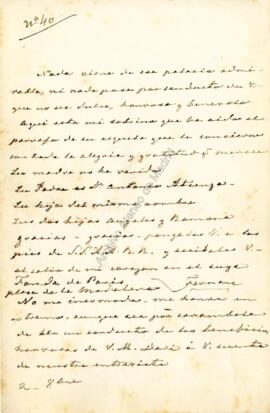 nº 40
Nada viene de ese palacio admi-
rable, ni nada pasa por conducto de V.
que no sea dulce, honroso y benevolo
Aqui está mi sobrina que ha oido el
parrafo de su esquela que le concierne
con toda la alegria y gratitud q merece
La madre no ha venido.
Su Padre es Dn Antonio Atienza
La hija del mismo nombre
Sus dos hijas Angeles y Ramona
gracias - gracias - pongalas V. a los
pies de S.S.A.A.R.R. y recibalas V.
el salia de mi corazon en el suyo
Fernan
plaza de la Madalena
No me incomodan, me honran en
estremo, aunque sea por carambola
de ser un conducto de los beneficios
honrosos de S.M. Daré á V. cuenta
de nuestra entrevista
2 - 8bre